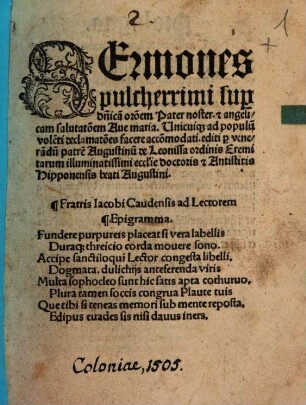 2.
1
SErmones
pulcherrimi sup
dñicã orõem Pater noster. & angeli-
cam salutatõem Aue maria. Unicuiq3 ad populũ
volẽti declamatões facere accõmodati. editi p vene-
rãdũ patrẽ Augustinũ de Leonissa ordinis Eremi
tarum illuminatissimi ecclie doctoris & Antistitis
Hipponensis beati Augustini.
¶ Fratris Iacobi Caudensis ad Lectorem
¶ Epigramma.
Fundere purpureis placeat si vera labellis
Duraq3 threicio corda mouere sono.
Accipe sanctiloqui Lector congesta libelli.
Dogmata. dulichijs anteferenda viris
Multa sophocleo sunt hic satis apta cothurno.
Plura tamen soccis congrua Plaute tuis
Que tibi si teneas memori sub mente reposta.
Edipus euades sis nisi dauus iners.
Coloniae, 1505.